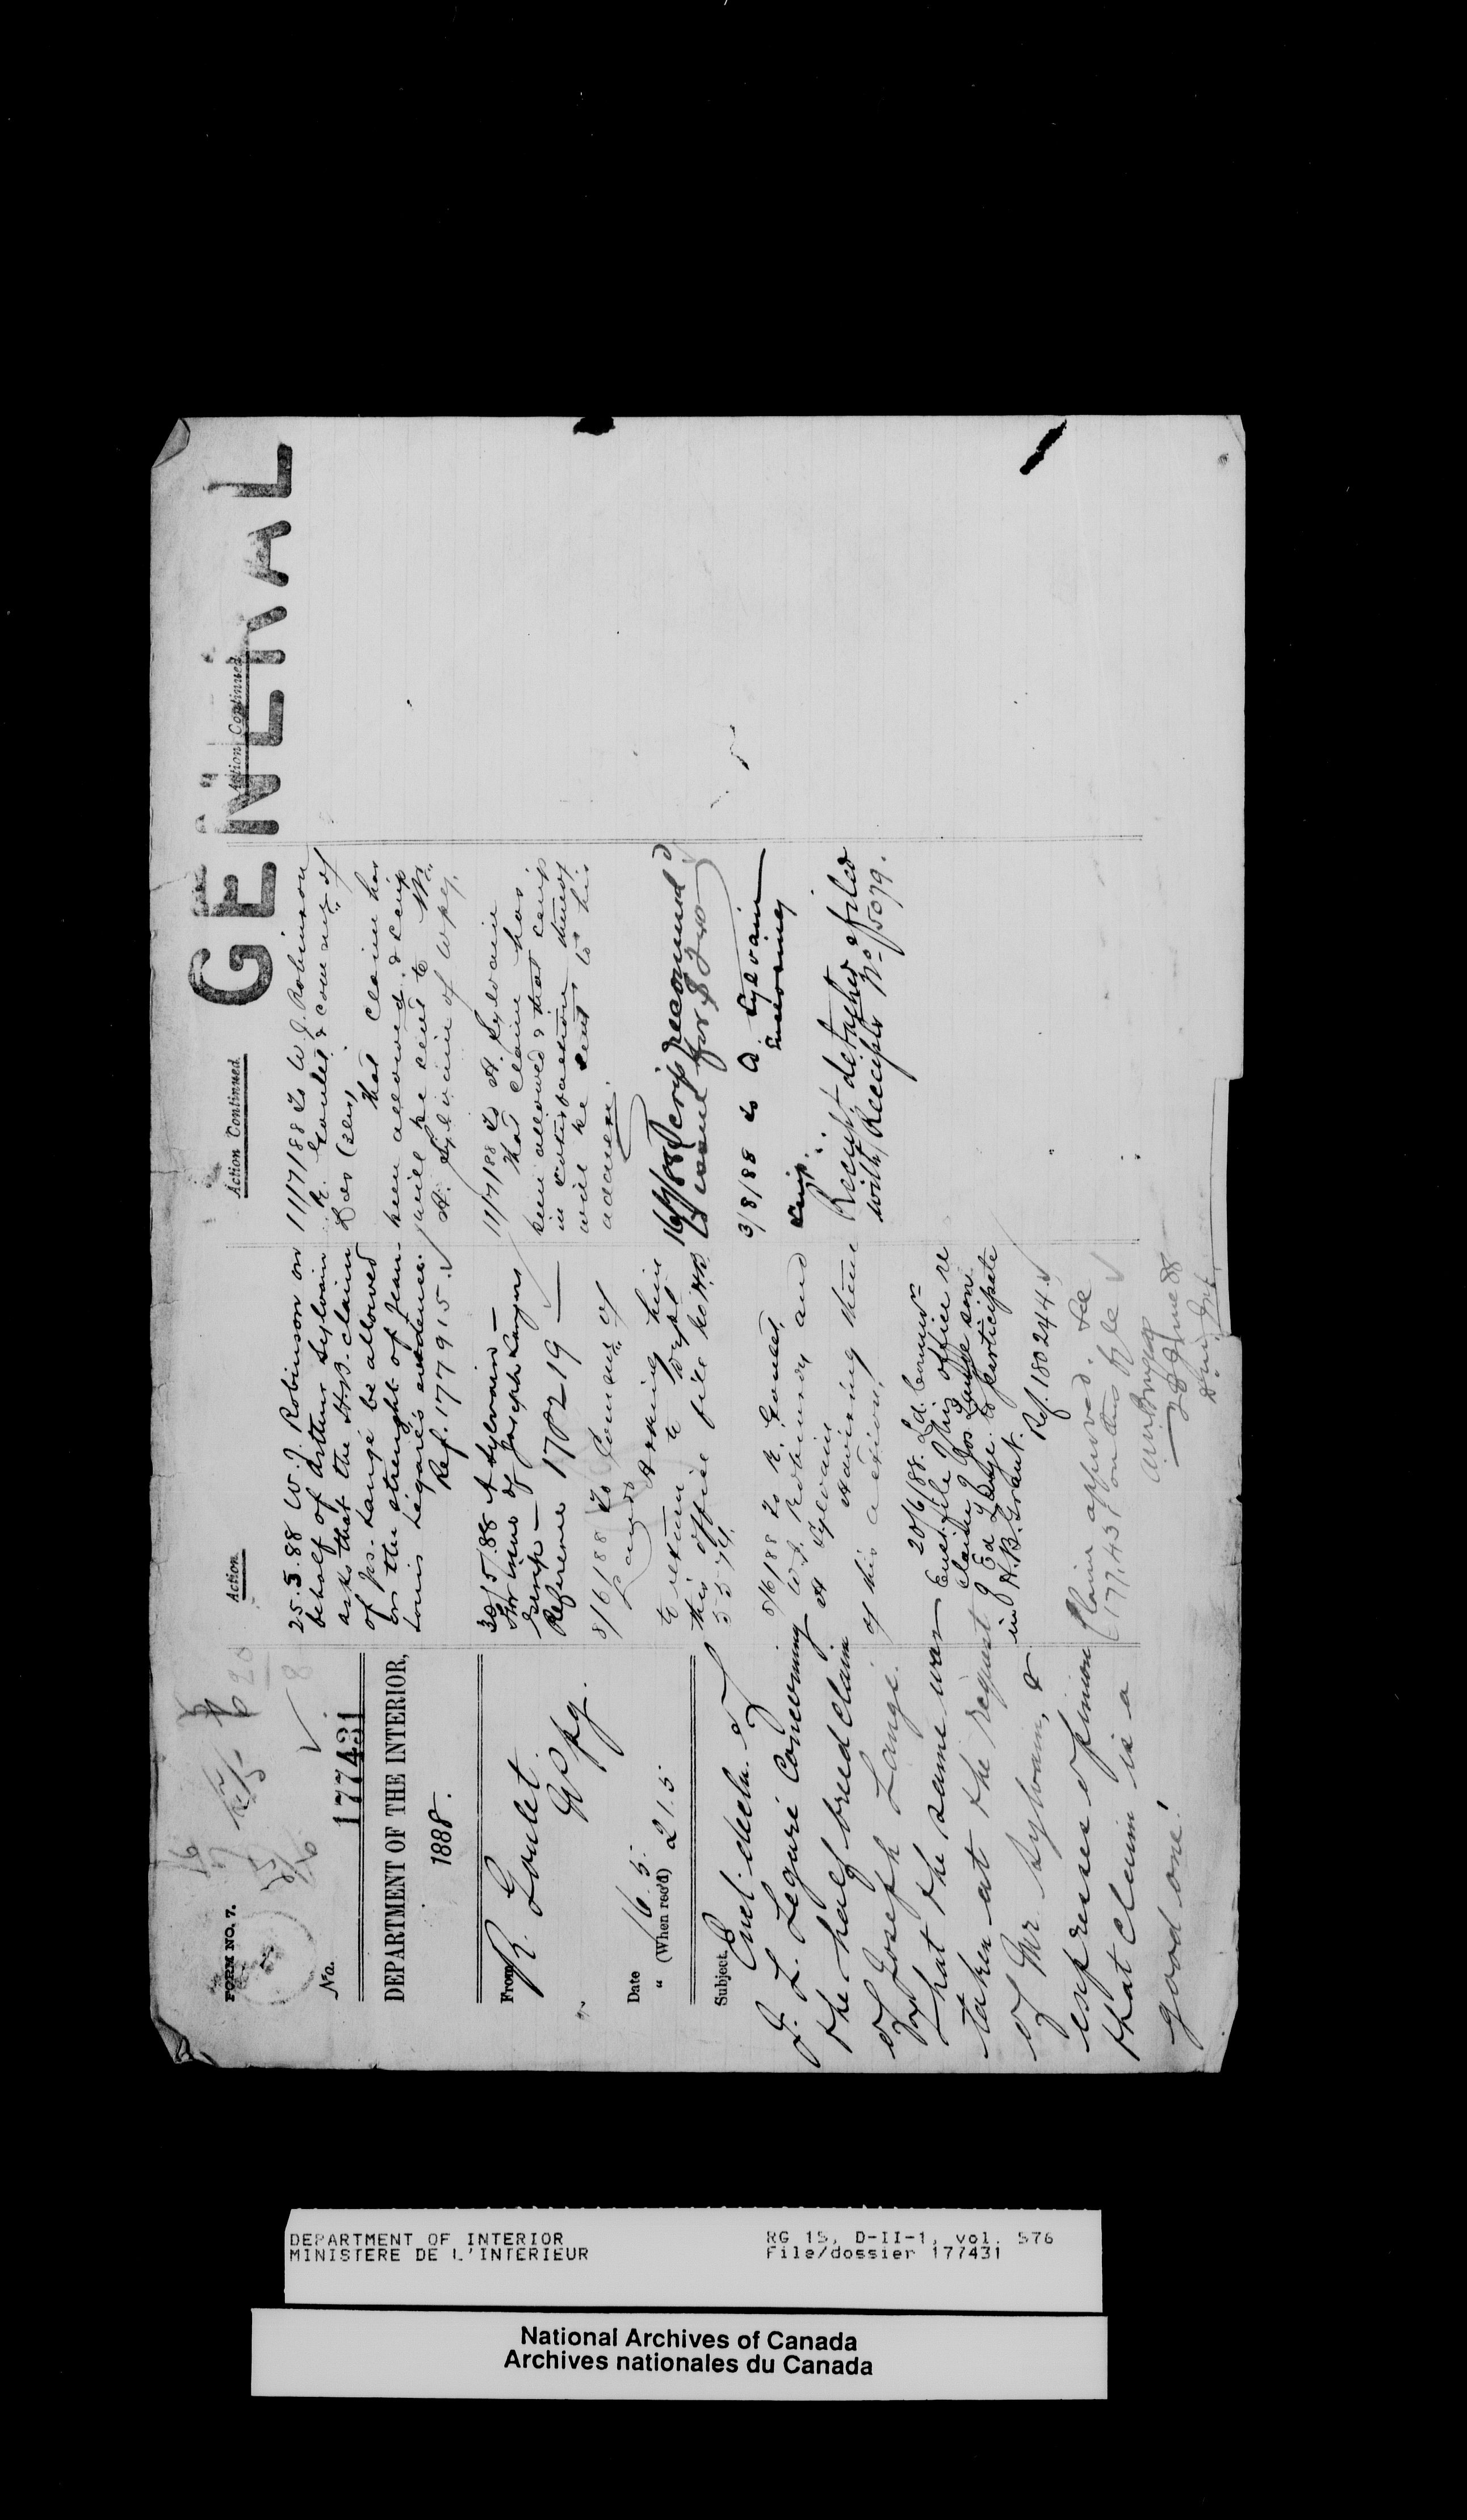 FORM NO. 7.
No. 177431
DEPARTMENT OF THE INTERIOR,
1888.
From R. Goulet
Wpg.
Date 16.5.
" (When recd) 21.5
Subject. Encl. decln. of
J. L. Legaré Concerning
the half breed claim
of Joseph Langé.
That the same was
taken at the request
of Mr Sylvain, &
expresses opinion
that claim is a
good one!
Action
25.5.88 W. J. Robinson on
behalf of Arthur Sylvain
asks that the H.B. claim
of Jos. Langé be allowed
on the strength of Jean
Louis Légaré's evidence.
Ref. 177915.
30/5/88 A Sylvain —
for issue of Joseph Langers
scrip —
Reference 178219 —
8/6/88 To Comsr. of
Lands Asking him
to return to Dept
this office file No HB
5574.
8/6/88 To R. Goulet,
W. J. Robinson and
A Sylvain
Advising them
of this action,
20/6/88. Ld. Commr.
Encl. file of his office re
claim of Jos. Langé son
of Ed. Langé to participate
in H.B. Grant.
Ref. 180244
Claim approved. See
177,431 on this file
28 June 88
Action Continued
11/7/88 To W. J. Robinson
R. Goulet & Comsr. of
D Ls (3 ltrs)
that claim has
been allowed & scrip
will be sent to Mr.
A. Sylvain of Wpg.
11/7/88 To A. Sylvain
that claim has
been allowed & that scrip
in satisfaction thereof
will be sent to his
address.
16/7/88 Scrip recommd'd
to issue for $240
3/8/88 to A. Sylvain
Enclosing
scrip.
Receipt detached & filed
with Receipts No 15079.
Action Continued
GENERAL
DEPARTMENT OF INTERIOR
MINISTERE DE L'INTERIEUR
RG 15, D-II-1, vol. 576
File/dossier 177431
National Archives of Canada
Archives nationales du Canada